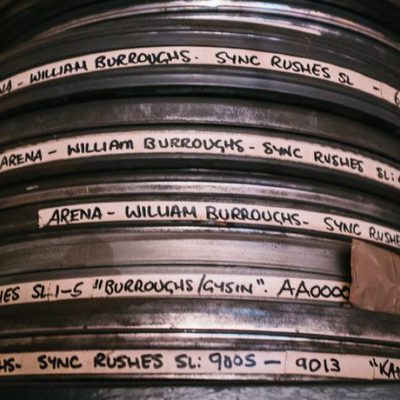 NA - WILLIAM BURROUGHS. SYNC RUSHES SL -
ARENA - WILLIAM BURROUGHS - SYNC RUSHES SL:
ARENA - WILLIAM BURROUGHS - SYNC RUSHES
HES SL.1-5 "BURROUGHS/GYSIN". AA0000
HS- SYNC RUSHES SL: 9005 - 9013 "KAN